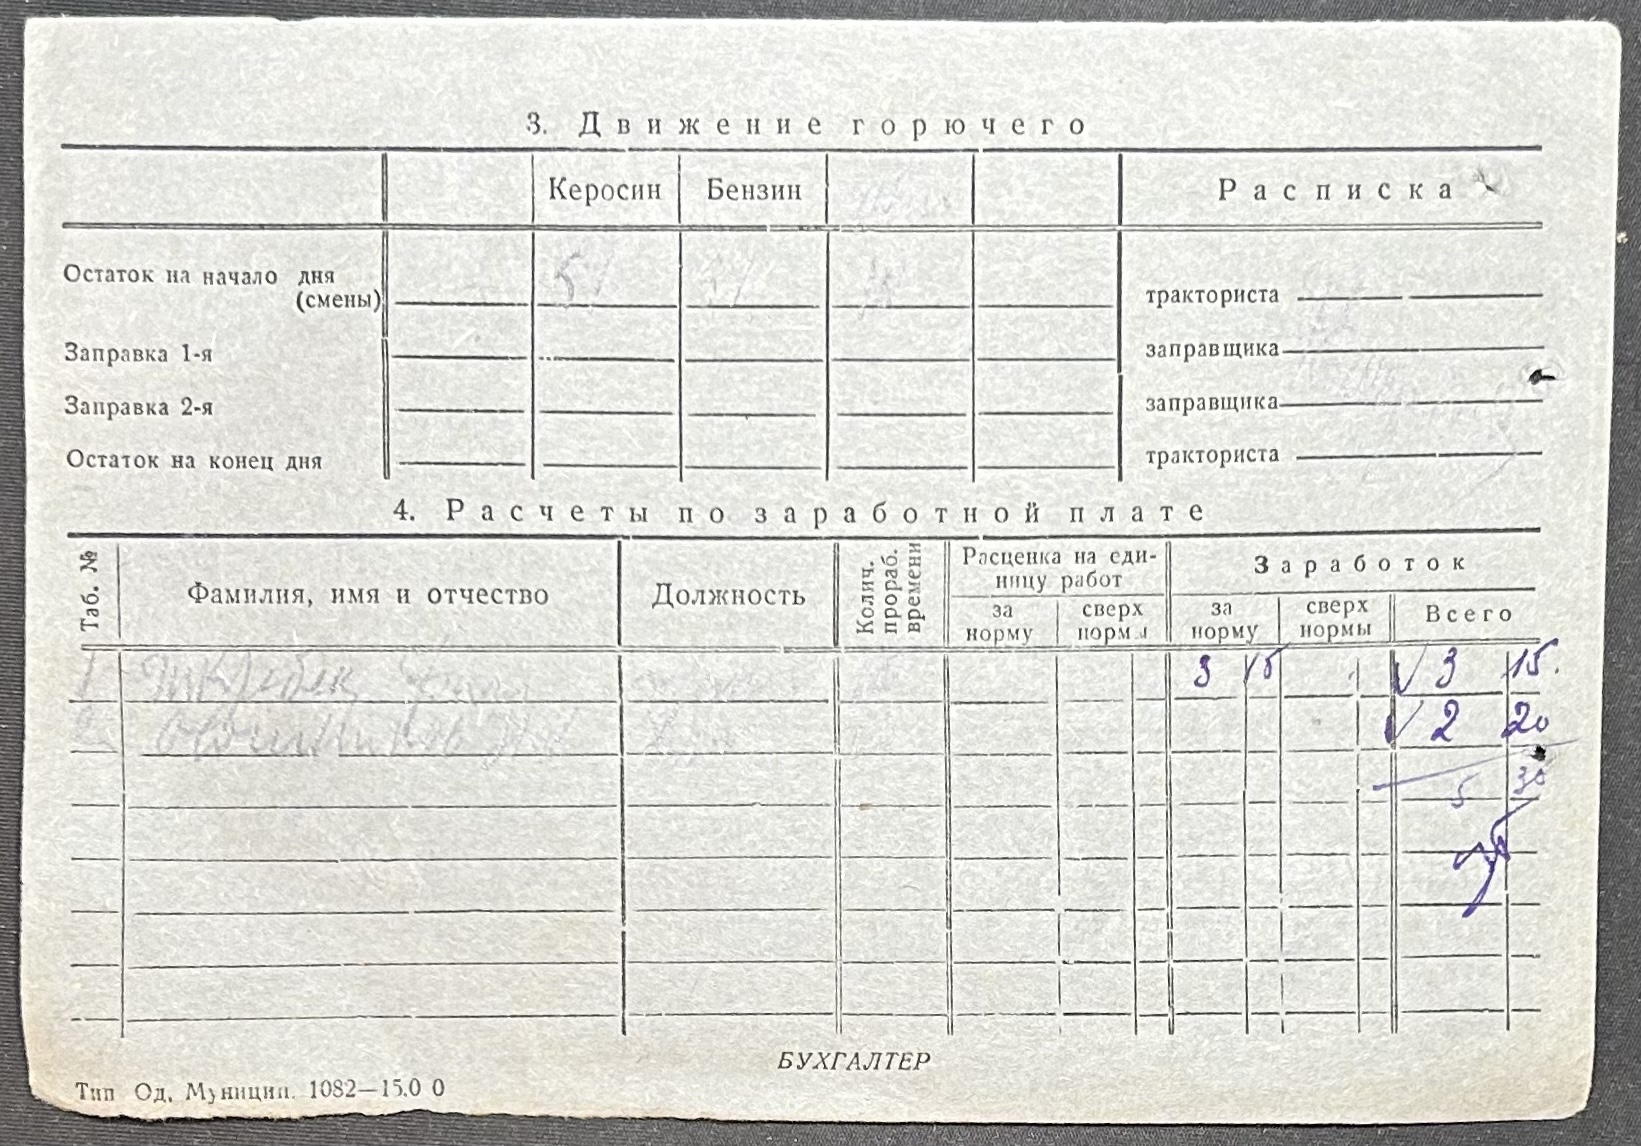 3. Движение горючего
Керосин Бензин Расписка
Остаток на начало дня
(смены)
51
тракториста
Заправка 1-я заправщика
Заправка 2-я заправщика
Остаток на конец дня тракториста
4. Расчеты по заработной плате
Таб. №
Фамилия, имя и отчество
Должность
Колич.
прораб.
времени
Расценка на еди-
ницу работ
за
норму
сверх
нормы
Заработок
за
норму
сверх
нормы
Всего
1 3 15 3 15.
2 2 20
5 30
БУХГАЛТЕР
Тип Од. Муницип. 1082—15.0 0